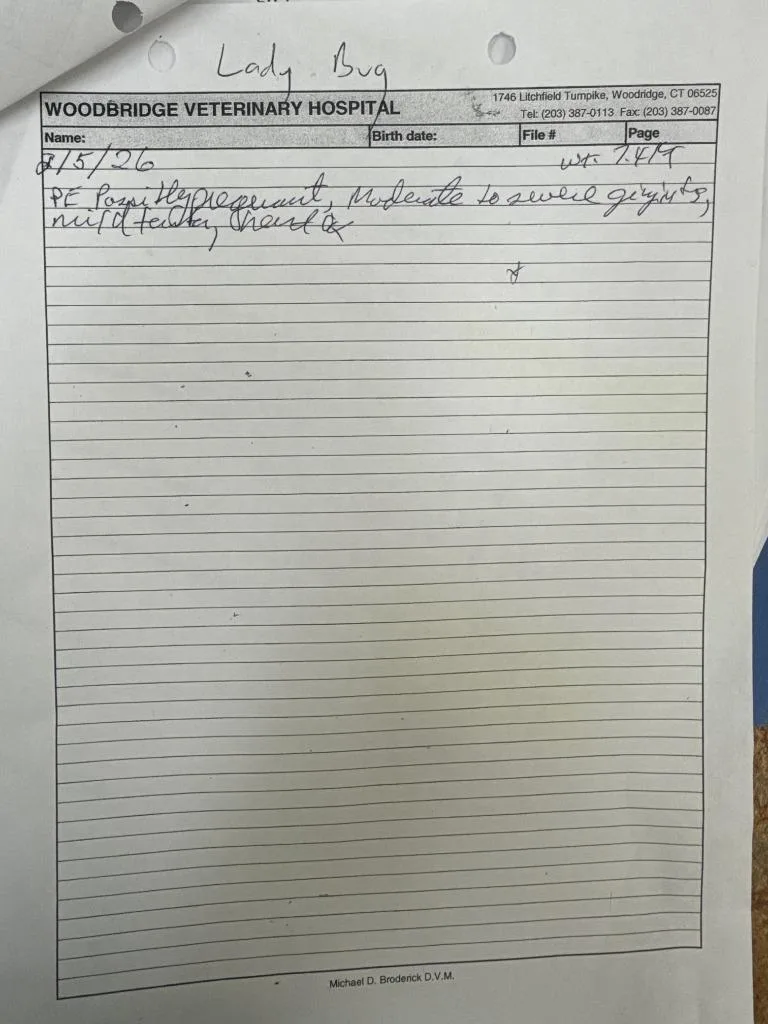 Lady Bug
1746 Litchfield Turnpike, Woodridge, CT 06525
WOODBRIDGE VETERINARY HOSPITAL
Tel: (203) 387-0113 Fax: (203) 387-0087
Name: Birth date: File # Page
2/5/26 wt. 7.4
PE Possibly pregnant, Moderate to severe gingivitis,
mild tartar,
Michael D. Broderick D.V.M.